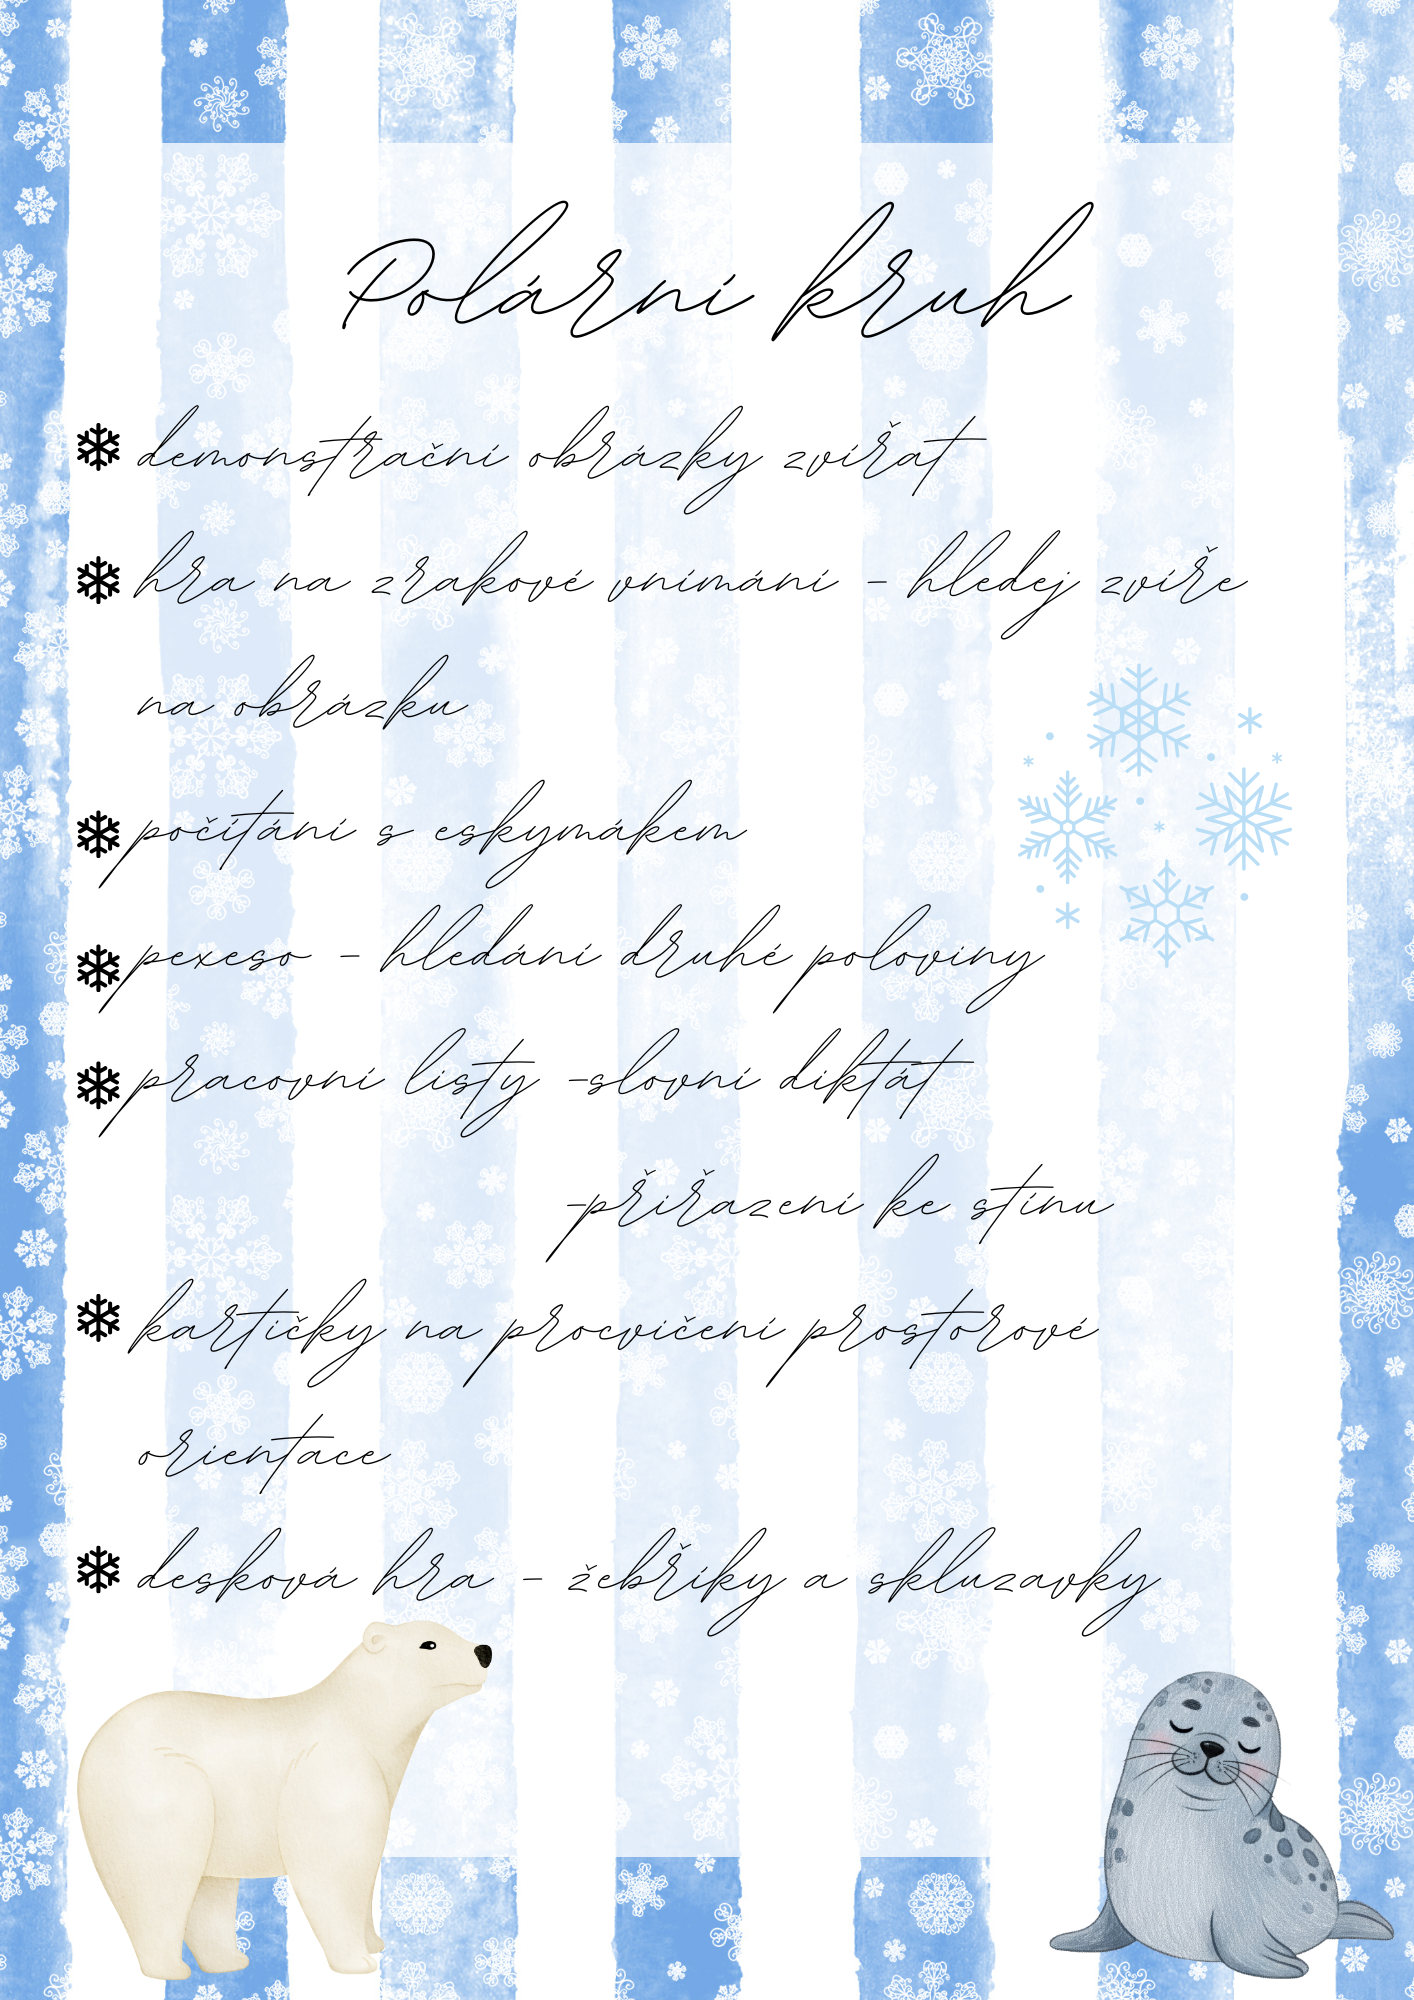 Polární kruh
demonstrační obrázky zvířat
hra na zrakové vnímání - hledej zvíře
na obrázku
počítání s eskymákem
pexeso - hledání druhé poloviny
pracovní listy -slovní diktát
-přiřazení ke stínu
kartičky na procvičení prostorové
orientace
desková hra - žebříky a skluzavky